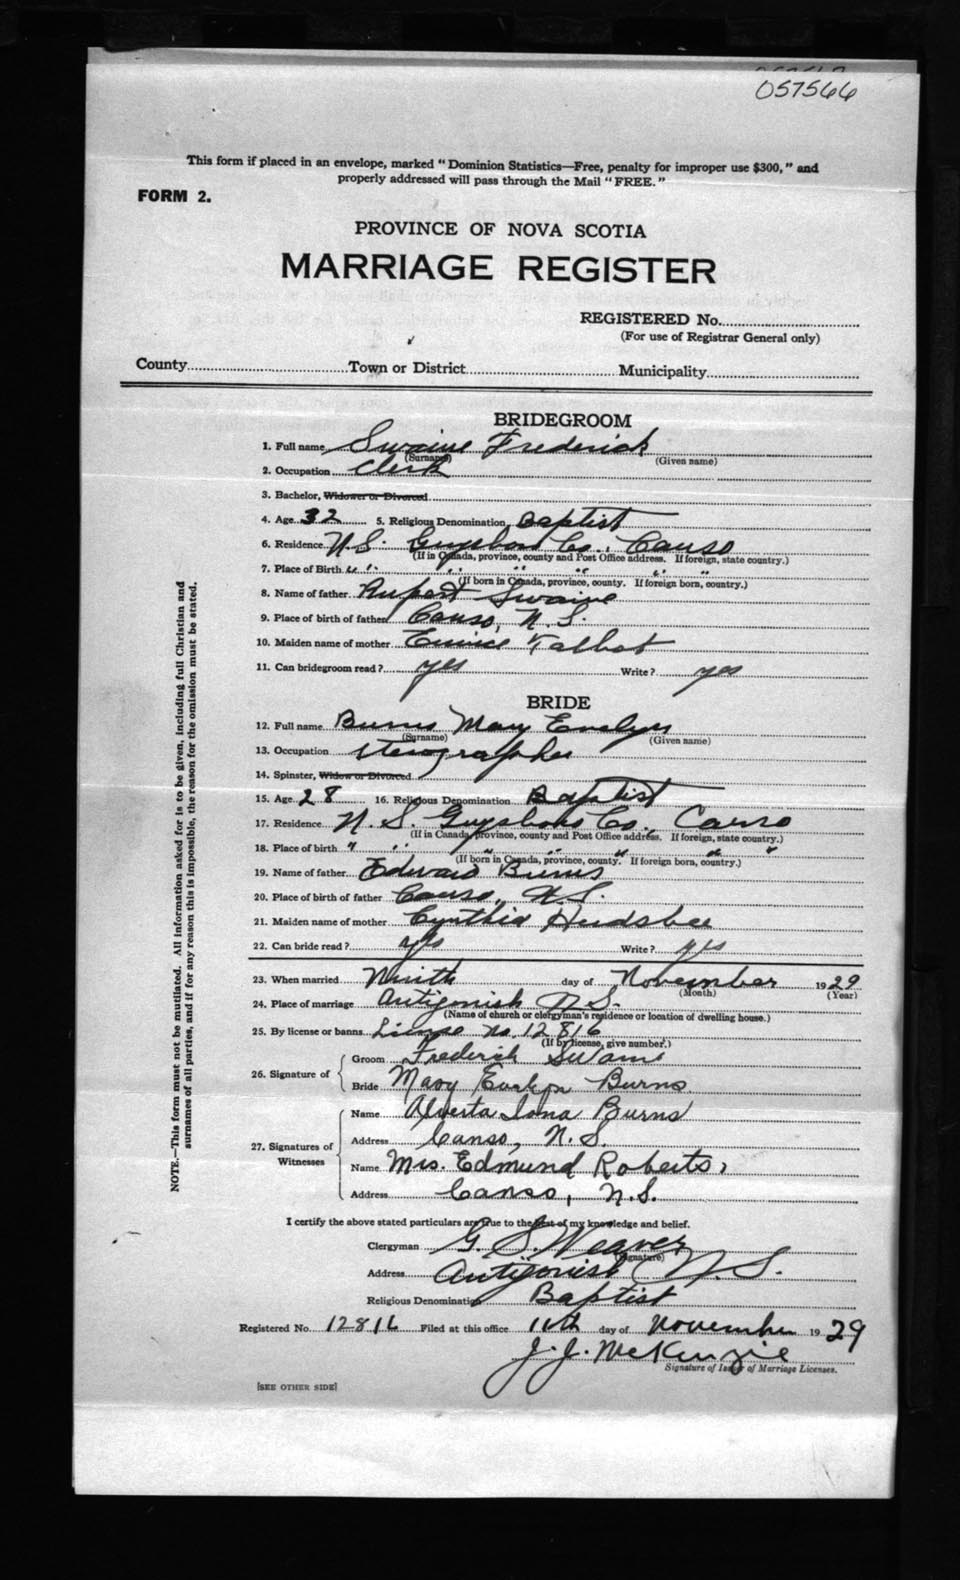 057566
This form if placed in an envelope, marked "Dominion Statistics—Free, penalty for improper use $300," and
properly addressed will pass through the Mail "FREE."
FORM 2.
PROVINCE OF NOVA SCOTIA
MARRIAGE REGISTER
REGISTERED No.
(For use of Registrar General only)
County Town or District Municipality
BRIDEGROOM
1. Full name Swaine Frederick
(Surname) (Given name)
2. Occupation Clerk
3. Bachelor, Widower or Divorced
4. Age 32 5. Religious Denomination Baptist
6. Residence N.S. Guysboro Co., Canso
(If in Canada, province, county and Post Office address. If foreign, state country.)
7. Place of Birth " " " " " "
(If born in Canada, province, county. If foreign born, country.)
8. Name of father Rupert Swaine
9. Place of birth of father Canso, N.S.
10. Maiden name of mother Eunice Talbot
11. Can bridegroom read? yes Write? yes
BRIDE
12. Full name Burns Mary Evelyn
(Surname) (Given name)
13. Occupation stenographer
14. Spinster, Widow or Divorced
15. Age 28 16. Religious Denomination Baptist
17. Residence N.S. Guysboro Co., Canso
(If in Canada, province, county and Post Office address. If foreign, state country.)
18. Place of birth " " " " " "
(If born in Canada, province, county. If foreign born, country.)
19. Name of father Edward Burns
20. Place of birth of father Canso, N.S.
21. Maiden name of mother Cynthia
22. Can bride read? yes Write? yes
23. When married Ninth day of November 1929
(Month) (Year)
24. Place of marriage Antigonish N.S.
(Name of church or clergyman's residence or location of dwelling house.)
25. By license or banns License No. 12816
(If by license, give number.)
26. Signature of Groom Frederick Swaine
Bride Mary Evelyn Burns
27. Signatures of Witnesses Name Alverta Iona Burns
Address Canso, N.S.
Name Mrs. Edmund Roberts,
Address Canso, N.S.
I certify the above stated particulars are true to the best of my knowledge and belief.
Clergyman G. S. Weaver
(Signature)
Address Antigonish N.S.
Religious Denomination Baptist
Registered No. 12816 Filed at this office 11th day of November 1929
J. J. McKenzie
Signature of Issuer of Marriage Licenses.
[SEE OTHER SIDE]
NOTE.—This form must not be mutilated. All information asked for is to be given, including full Christian and
surnames of all parties, and if for any reason this is impossible, the reason for the omission must be stated.